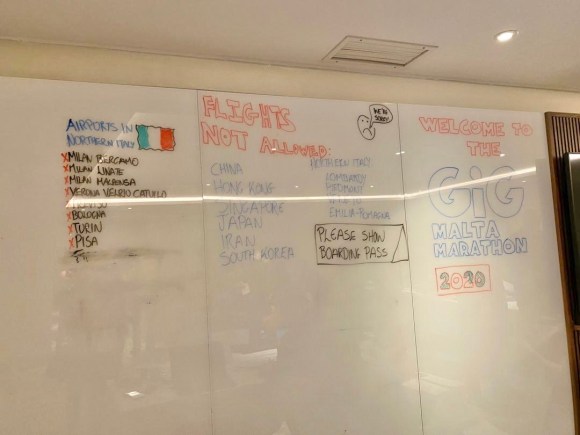 AIRPORTS IN
NORTHERN ITALY
XMILAN BERGAMO
XMILAN LINATE
XMILAN MALPENSA
XVERONA VELRIN CATULLO
XTREVISO
XBOLOGNA
XTURIN
XPISA
FLIGHTS
NOT ALLOWED:
WE'RE
SORRY
CHINA
HONG KONG
SINGAPORE
JAPAN
IRAN
SOUTH KOREA
NORTHERN ITALY
LOMBARDY
PIEDMONT
EMILIA-ROMAGNA
PLEASE SHOW
BOARDING PASS
WELCOME TO
THE
GiG
MALTA
MARATHON
2020